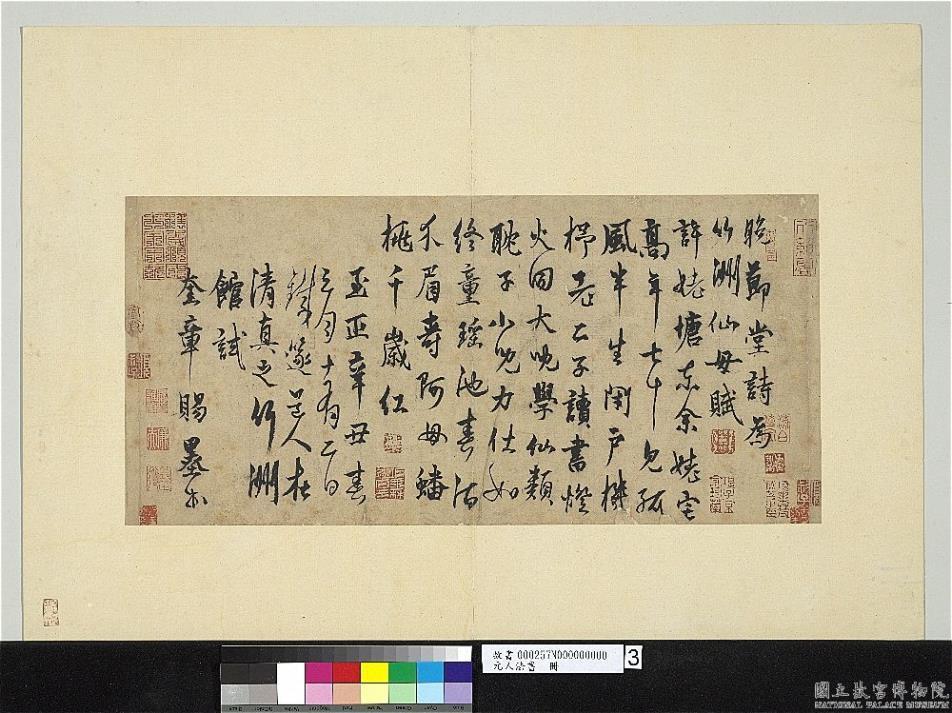 晚節堂詩為
竹洲仙母賦
許姥塘東余姥宅
高年七十見孤
風半生閉戶機
杼老二子讀書燈
火同大兒學仙類
聃子小兒力仕如
終童瑤池春酒
介眉壽阿母蟠
桃千歲紅
至正辛丑春
三月十有二日
鐵篴道人在
清真之竹洲
館試
奎章賜墨書
故書 000257N000000000
元人法書 冊
3
國立故宮博物院
NATIONAL PALACE MUSEUM